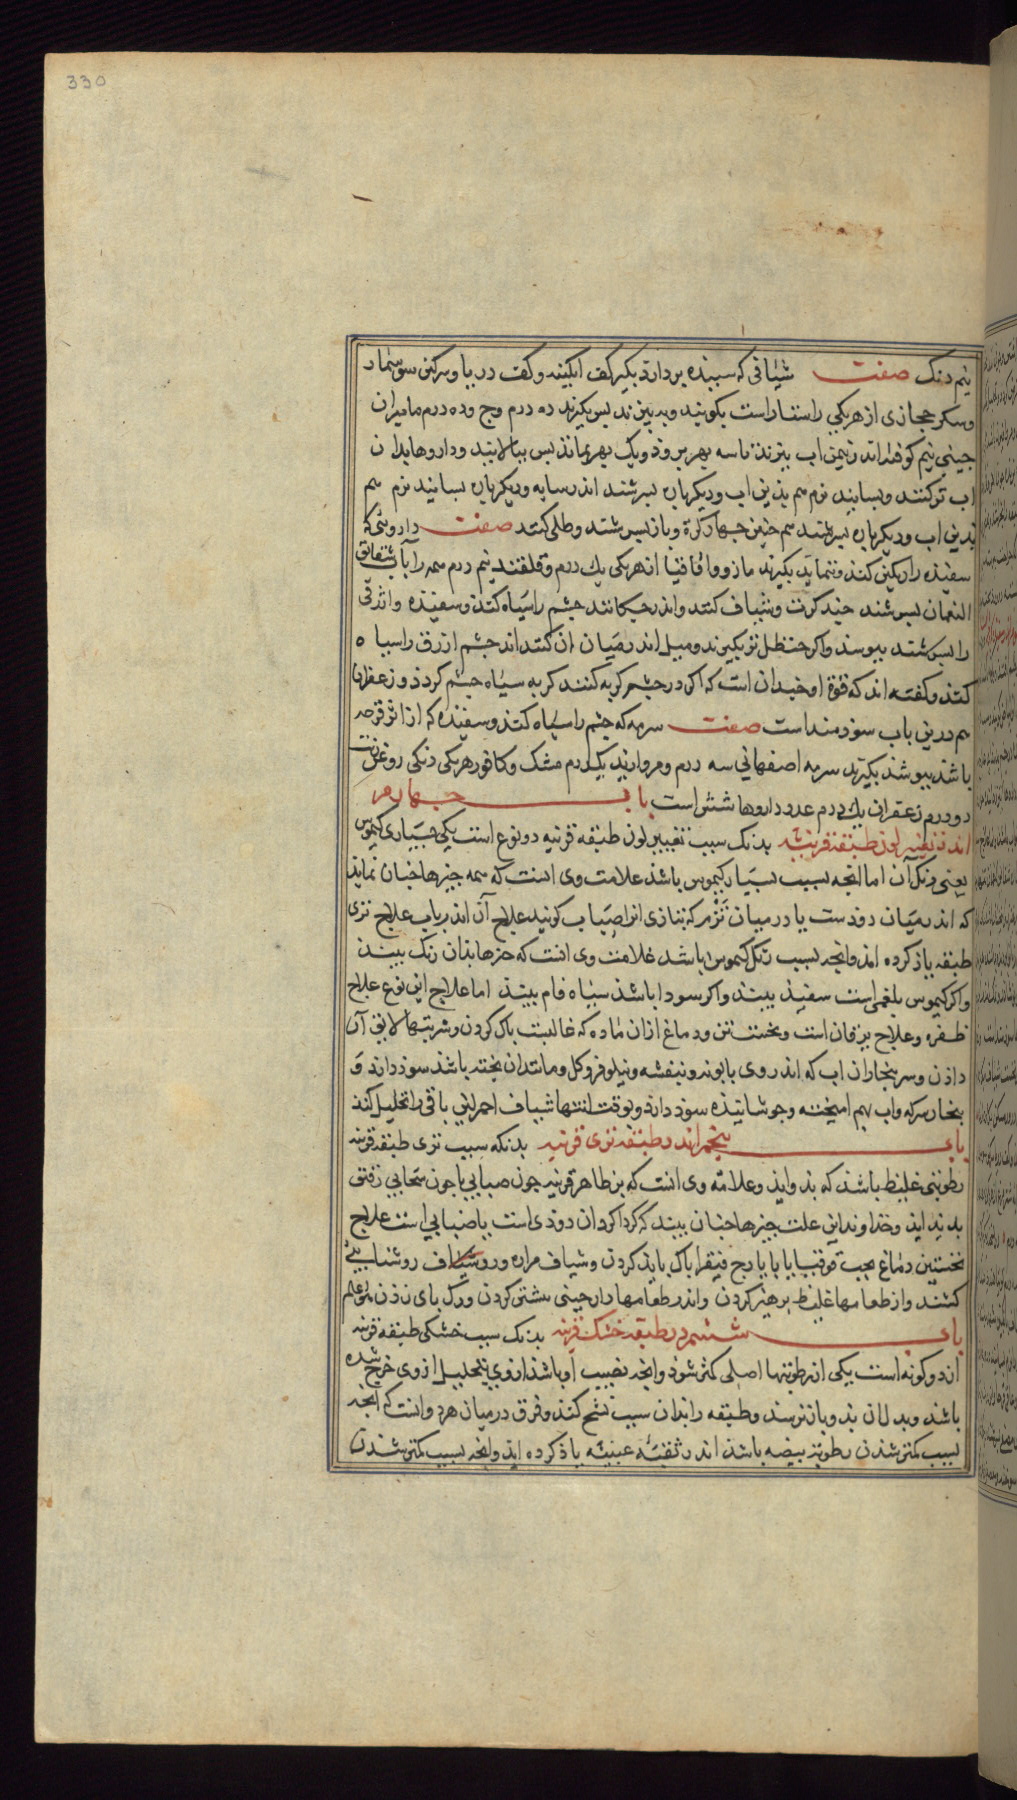 330
نیم دنگ صفت شیافی که سبیذه بردارذ بکیر کف ابکینه وکف دریا وسرکین سوسمار
وسکر حجازی ازهریکی راستاراست بکوبند وببیزند بس بکیرند ده درم وج وده درم مامیران
جینی نیم کوفته اندر نیم من اب ببزند تا سه بهر بروذ ویک بهر بماند بس ببالایند وداروها بدان
اب ترکنند وبسایند نرم هم بذین اب ودیکرباره بسرشند اندر سایه ودیکرباره بسایند نرم هم
بذین اب ودیکرباره بسرشند هم جنین جهار کرة وباز بسرشند وطلی کنند صفت داروئی که
سفیذه را رنکین کنذ بکیرند مازو واقاقیا ازهریکی یک درم وقلقند نیم درم همه را بآب شقایق
النعمان بسرشند جند کرت وشیاف کنند واندر جکانند جشم را سیاه کنذ وسفیذه واثر
را بپوشذ واکر حنظل تر بکیرند ومیل اندر میان ان کنند اندر جشم ازرق را سیاه
کنذ وکفته اند که قوة او جندان است که اکر در جشم کربه کنند کربه سیاه جشم کردذ وزعفران
هم درین باب سوذمند است صفت سرمه که جشم را سیاه کنذ وسفیذه که از اثر قرحه
باشذ ببوشذ بکیرند سرمه اصفهانی سه درم ومروارید یکدرم مشک وکافور هریکی دنکی روغن زیت
دو درم زعفران یک درم عدد داروها شش است باب جهارم
اندر تغییر لون طبقه قرنیه بدنک سبب تغییر لون طبقه قرنیه دو نوع است یکی بسیاری کیموس
یعنی رنک آن اما انجه بسبب بسیار کیموس باشذ علامت وی انست که همه جیزها جنان نماید
که اندر میان دوذ است یا در میان نزم که بتازی انرا ضباب کویند علاج آن اندر باب علاج تری
طبقه یاذ کرده امد وانجه بسبب رنک کیموس باشد علامت وی انست که جیزها بدان رنک بیند
واکر کیموس بلغمی است سفیذ بیند واکر سودا باشذ سیاه فام بیند اما علاج این نوع علاج
ظفره وعلاج یرقان است ونخست تن ودماغ ازان ماده که غالبست باک کردن وشربتها لایق آن
داذن وسر ببخاران اب که اندر وی بابونه وبنفشه ونیلوفر وکل ومانند ان بخته باشذ سوذ دارذ و
بخار سرکه واب بهم امیخته وجوشانیذه سوذ دارذ وبوقت انتها شیاف احمر لین باقی را تحلیل کند
باب بنجم اندر طبقه تری قرنیه بدنکه سبب تری طبقه قرنیه
رطوبتی غلیظ باشذ که بذو ایذ وعلامه وی انست که بر ظاهر قرنیه جون ضبابی یا جون سحابی رقیق
بدید اید وخداوند این علت جیزها جنان بیند که کرداکرد ان دوذی است یا ضبابی است علاج
نخستین دماغ بحب قوقیا یا بایارج فیقرا باک بایذ کردن وشیاف مراره وروشیاف روشنایی
کشند واز طعامها غلیظ برهیز کردن واندر طعامها دارجینی بیشتر کردن ورک بای زذن
باب ششم در طبقه خشک قرنیه بدنک سبب خشکی طبقه قرنیه
از دو کونه است یکی ان رطوبتها اصلی کمتر شوذ وانجه نصیب او باشذ از وی بتحلیل از وی خرج شده
باشذ وبدل ان بذو باز نرسذ وطبقه را بدان سبب تشنج کنذ وفرق در میان هر دو انست که انجه
بسبب کمتر شدن رطوبة بیضه باشذ اندر ثقبه عنبیه یاذ کرده اید وانجه بسبب کمتر شدن